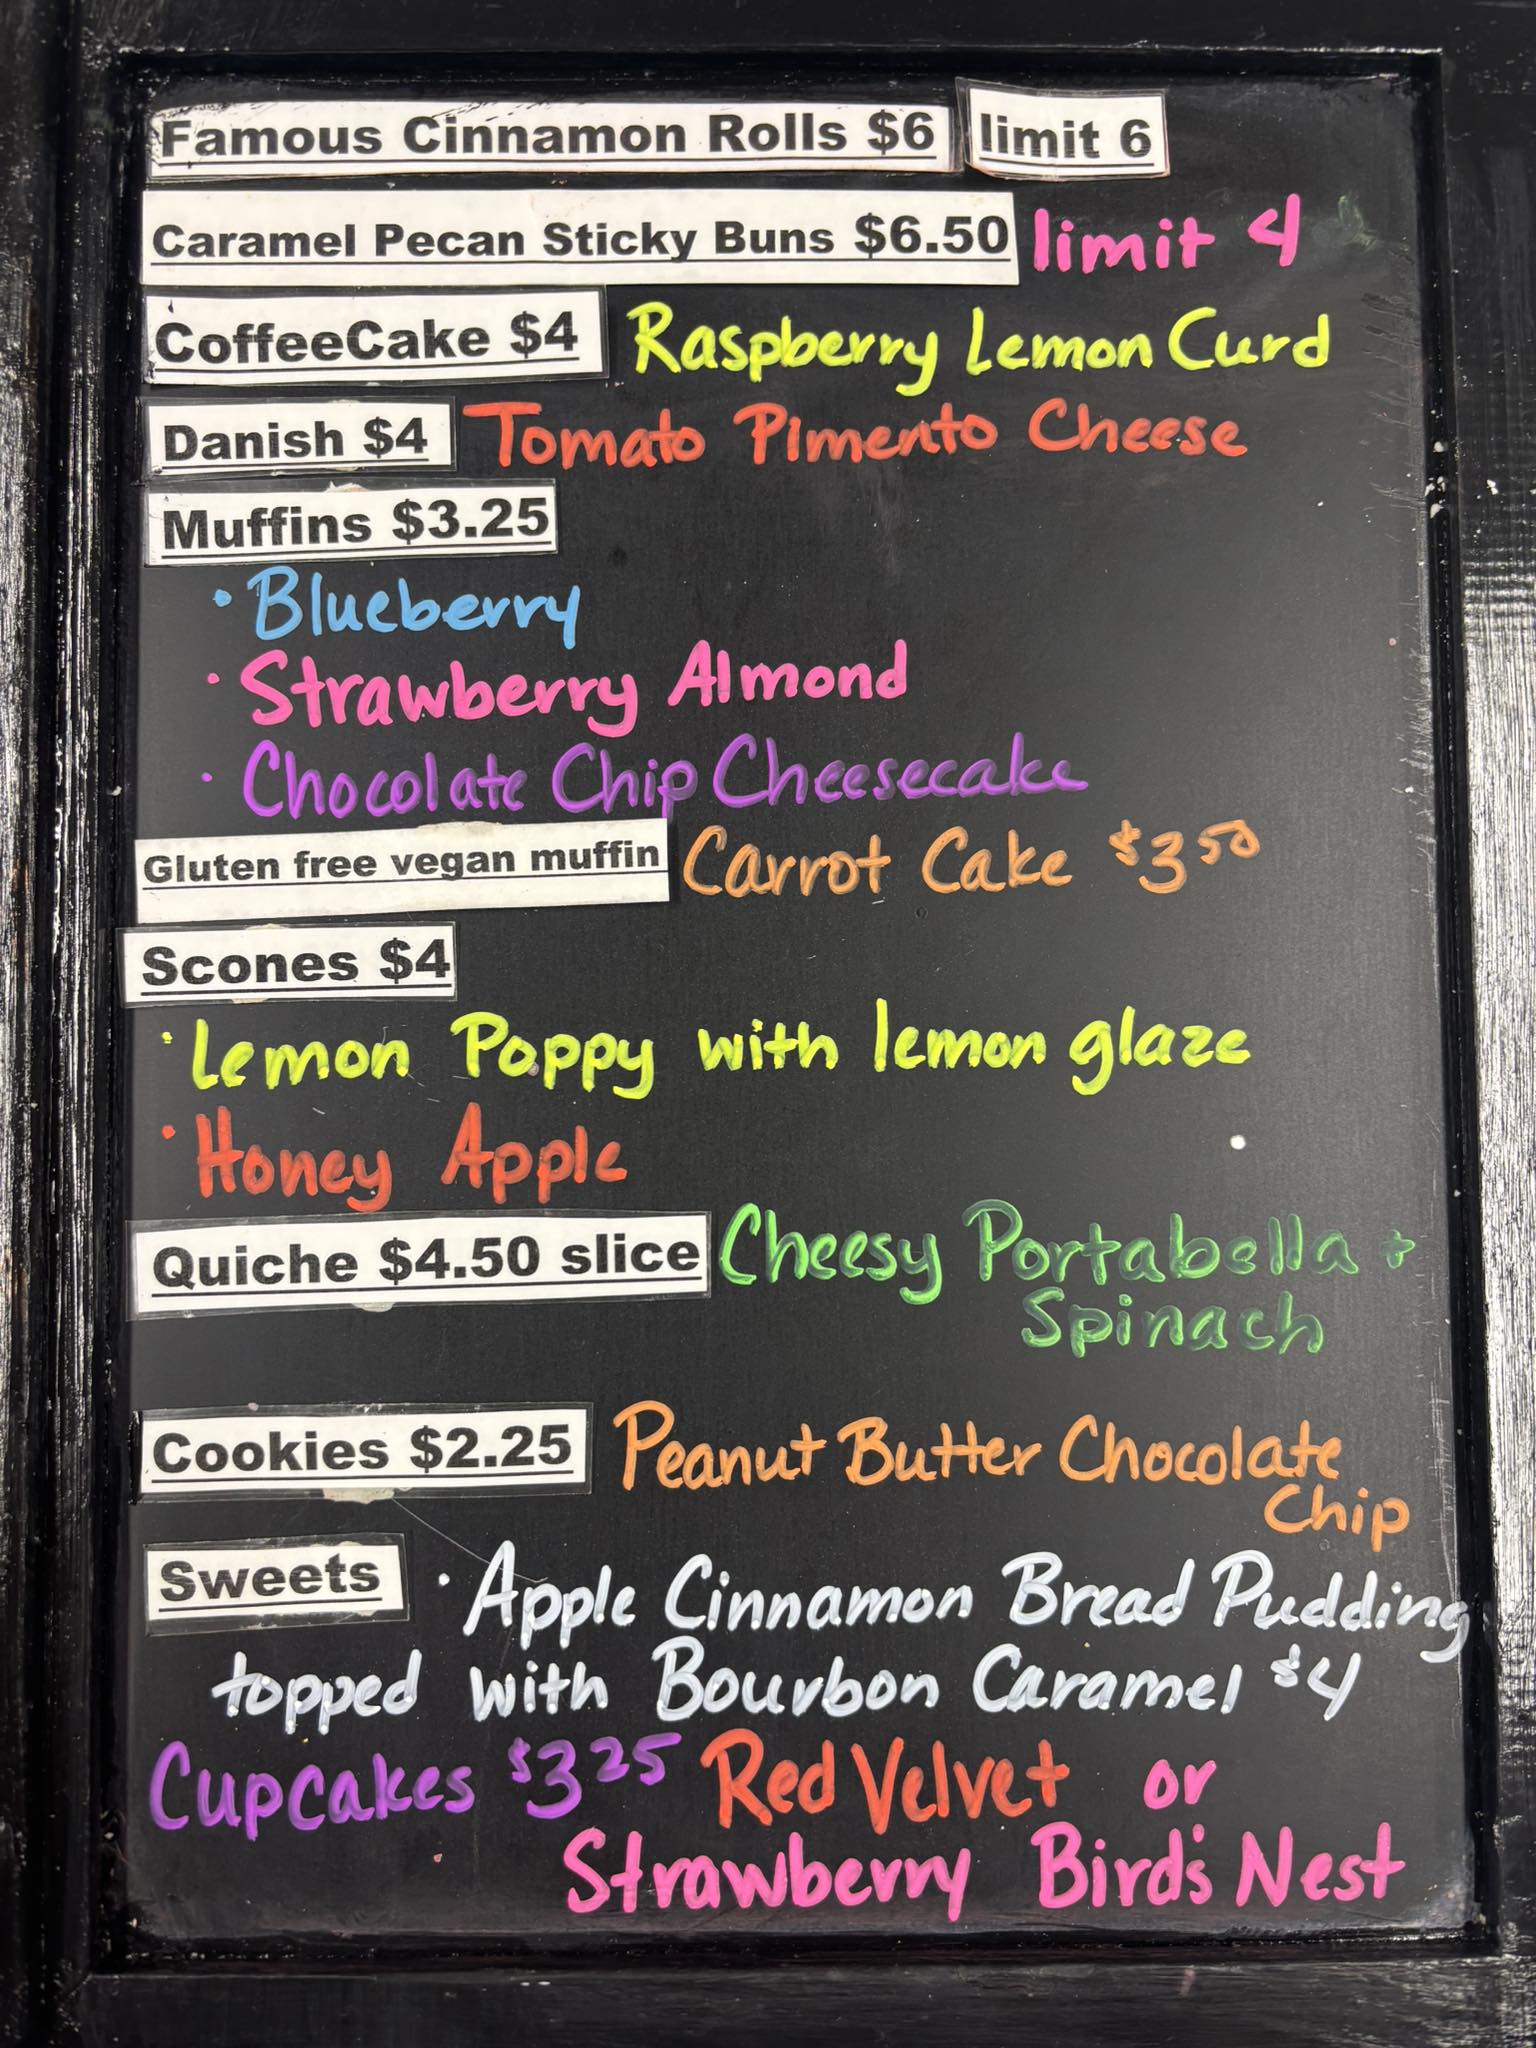 Famous Cinnamon Rolls $6 limit 6
Caramel Pecan Sticky Buns $6.50 limit 4
CoffeeCake $4 Raspberry Lemon Curd
Danish $4 Tomato Pimento Cheese
Muffins $3.25
· Blueberry
· Strawberry Almond
· Chocolate Chip Cheesecake
Gluten free vegan muffin Carrot Cake $3.50
Scones $4
· Lemon Poppy with lemon glaze
· Honey Apple
Quiche $4.50 slice Cheesy Portabella +
Spinach
Cookies $2.25 Peanut Butter Chocolate
Chip
Sweets · Apple Cinnamon Bread Pudding
topped with Bourbon Caramel $4
Cupcakes $3.25 Red Velvet or
Strawberry Bird's Nest